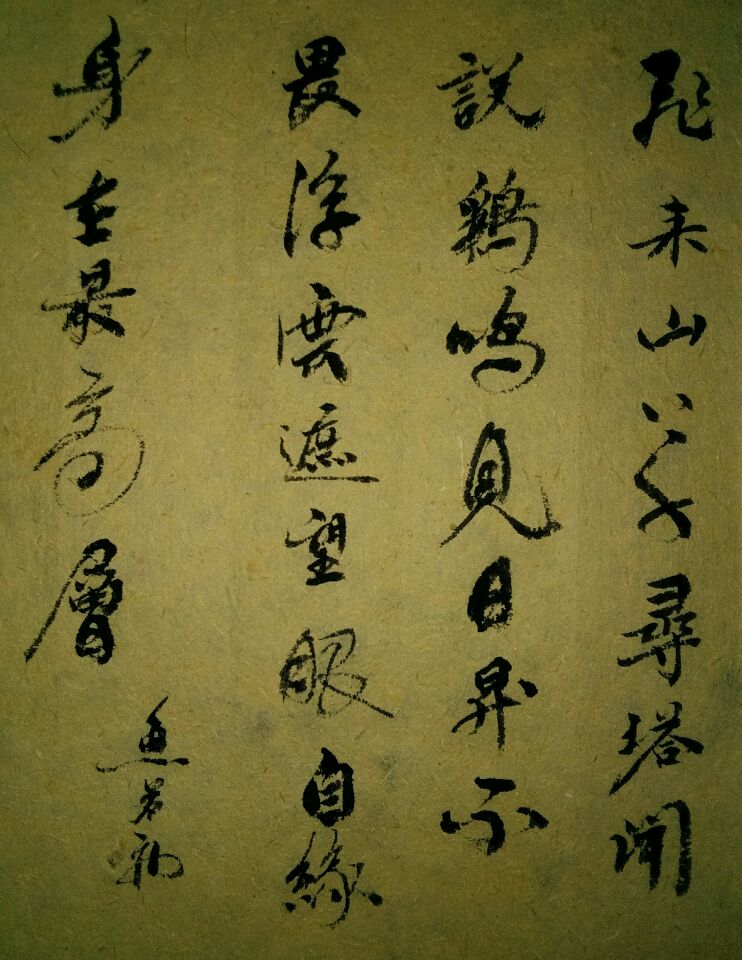 飛来山上千尋塔聞
説鷄鳴見日昇不
畏浮雲遮望眼自緣
身在最高層